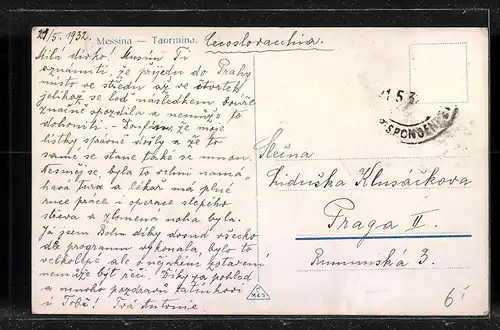 21/5. 1932. Messina — Taormina. Cecoslovacchia.
Milá divko! Musím Ti
oznámiti, že přijedu do Prahy
místo ve středu až ve čtvrtek
jelikož se loď následkem bouře
značně opozdila a nemůže to
dohoniti. Doufám, že moje
lístky správně došly a že to
samé se stane také se mnou.
Nesměj se, byla to velmi namá-
havá tura a lékař má plné
ruce práce i operace slepého
střeva a zlomená noha byla.
Já jsem Bohu díky dosud všecko
dle programu vykonala, bylo to
velkolepé ale o nějakém zostavení
nemůže být řeči. Díky za pohled
a mnoho pozdravů tatínkovi
i Tobě! Tvá Antonie.
Slečna
Liduška Klusáčkova
Praga II.
Rumunska 3.
1 5 3
SPONDEN
6